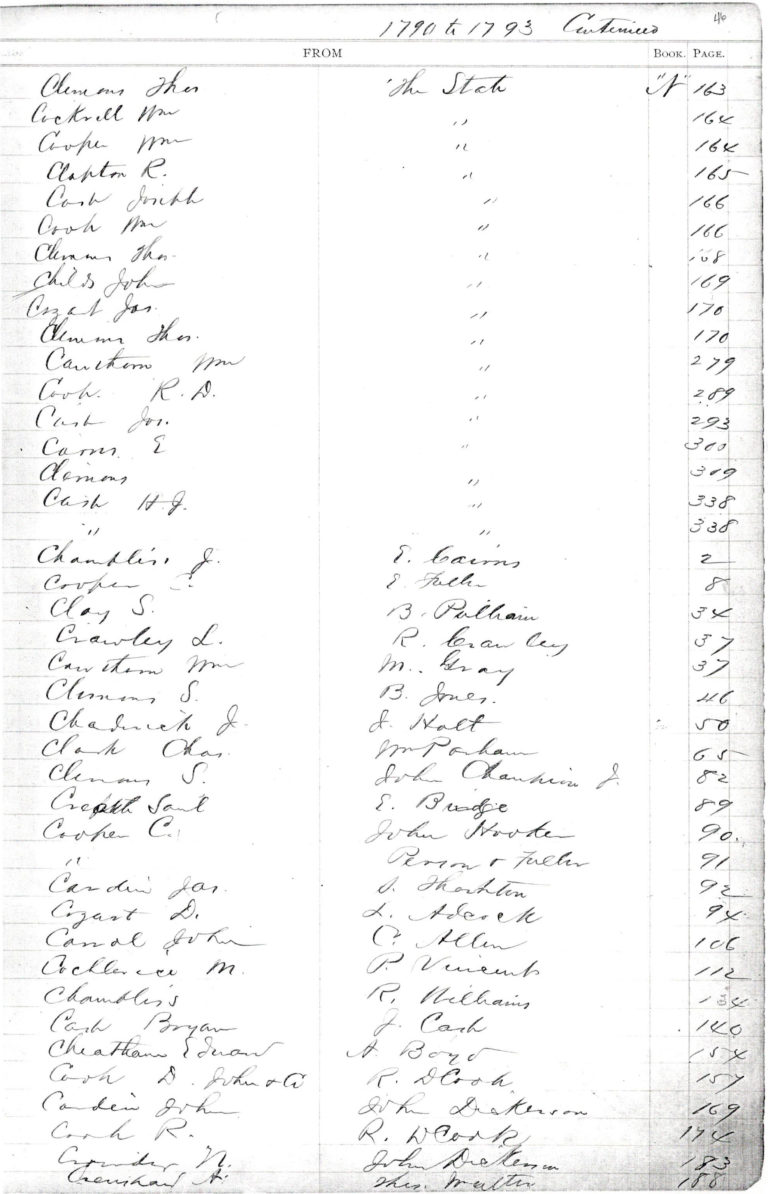 46
1790 to 1793 Continued
FROM BOOK. PAGE.
Clemons Thos The State "N" 163
Cockrell Wm " 164
Cooper Wm " 164
Clapton R. " 165
Cash Joseph " 166
Cook Wm " 166
Clemons Thos. " 168
Childs John " 169
Cozart Jas. " 170
Clemons Thos. " 170
Cawthorn Wm " 279
Cook. R. D. " 289
Cash Jos. " 293
Cairns E " 300
Clemons " 309
Cash H. J. " 338
" " 338
Chambliss J. E. Cairns 2
Cooper C. E Fuller 8
Clay S. B. Pulliam 34
Crawley L. R. Crawley 37
Cawthorn Wm M. Gray 37
Clemons S. B. Jones. 46
Chadwick J. J. Holt 50
Clark Chas. Wm Parham 65
Clemons S. John Champion J. 82
Saml E. Bridge 89
Cooper C. John Hooker 90.
" Person & Fuller 91
Cardin Jas. S. Thornton 92
Cozart D. L. Adcock 94
Carrol John C. Allen 106
M. P. Vincent 112
Chambliss R. Williams
Cash Bryan J. Cash 140
Cheatham Edward A. Boyd 154
Cook D. John & C R. D Cook 157
Cardin John John Dickerson 169
Cook R. R. D Cook 174
Crowder N. John Dickerson 183
Crenshaw A. Thos. 188